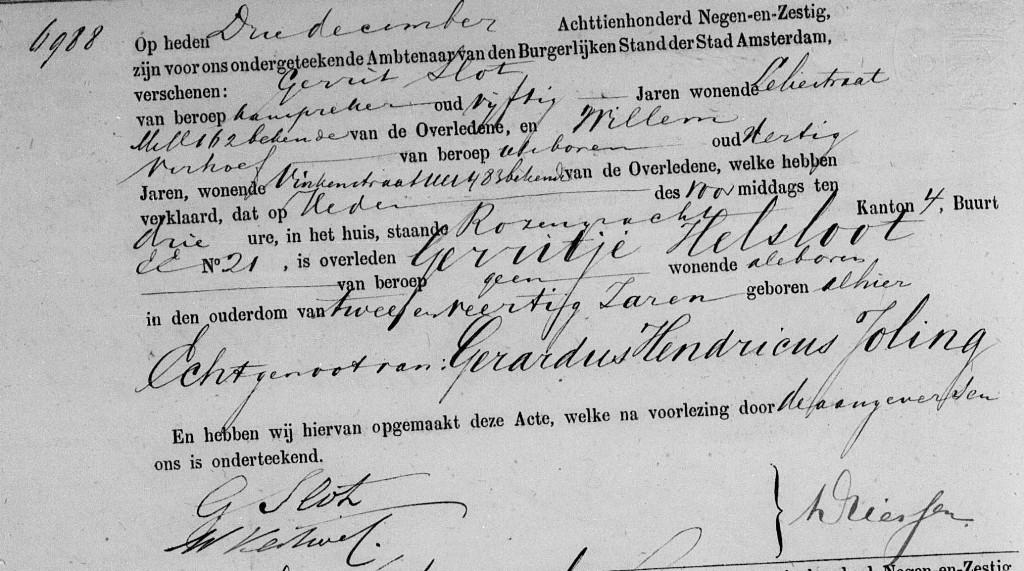 6988
Op heden Drie december Achttienhonderd Negen-en-Zestig,
zijn voor ons ondergeteekende Ambtenaar van den Burgerlijken Stand der Stad Amsterdam,
verschenen: Gerrit Slot
van beroep oud vijftig Jaren wonende Leliestraat
162 bekende van de Overledene, en Willem
Verhoef van beroep als boven oud Veertig
Jaren, wonende Vinkenstraat 483 bekende van de Overledene, welke hebben
verklaard, dat op Heden des voor middags ten
drie ure, in het huis, staande Rozengracht Kanton 4, Buurt
EE No 21, is overleden Gerritje Helsloot
van beroep geen wonende als boven
in den ouderdom van twee en veertig Jaren geboren alhier
Echtgenoot van: Gerardus Hendricus Joling
En hebben wij hiervan opgemaakt deze Acte, welke na voorlezing door de aangevers en
ons is onderteekend.
G Slot
W Verhoef.
en-Zestig